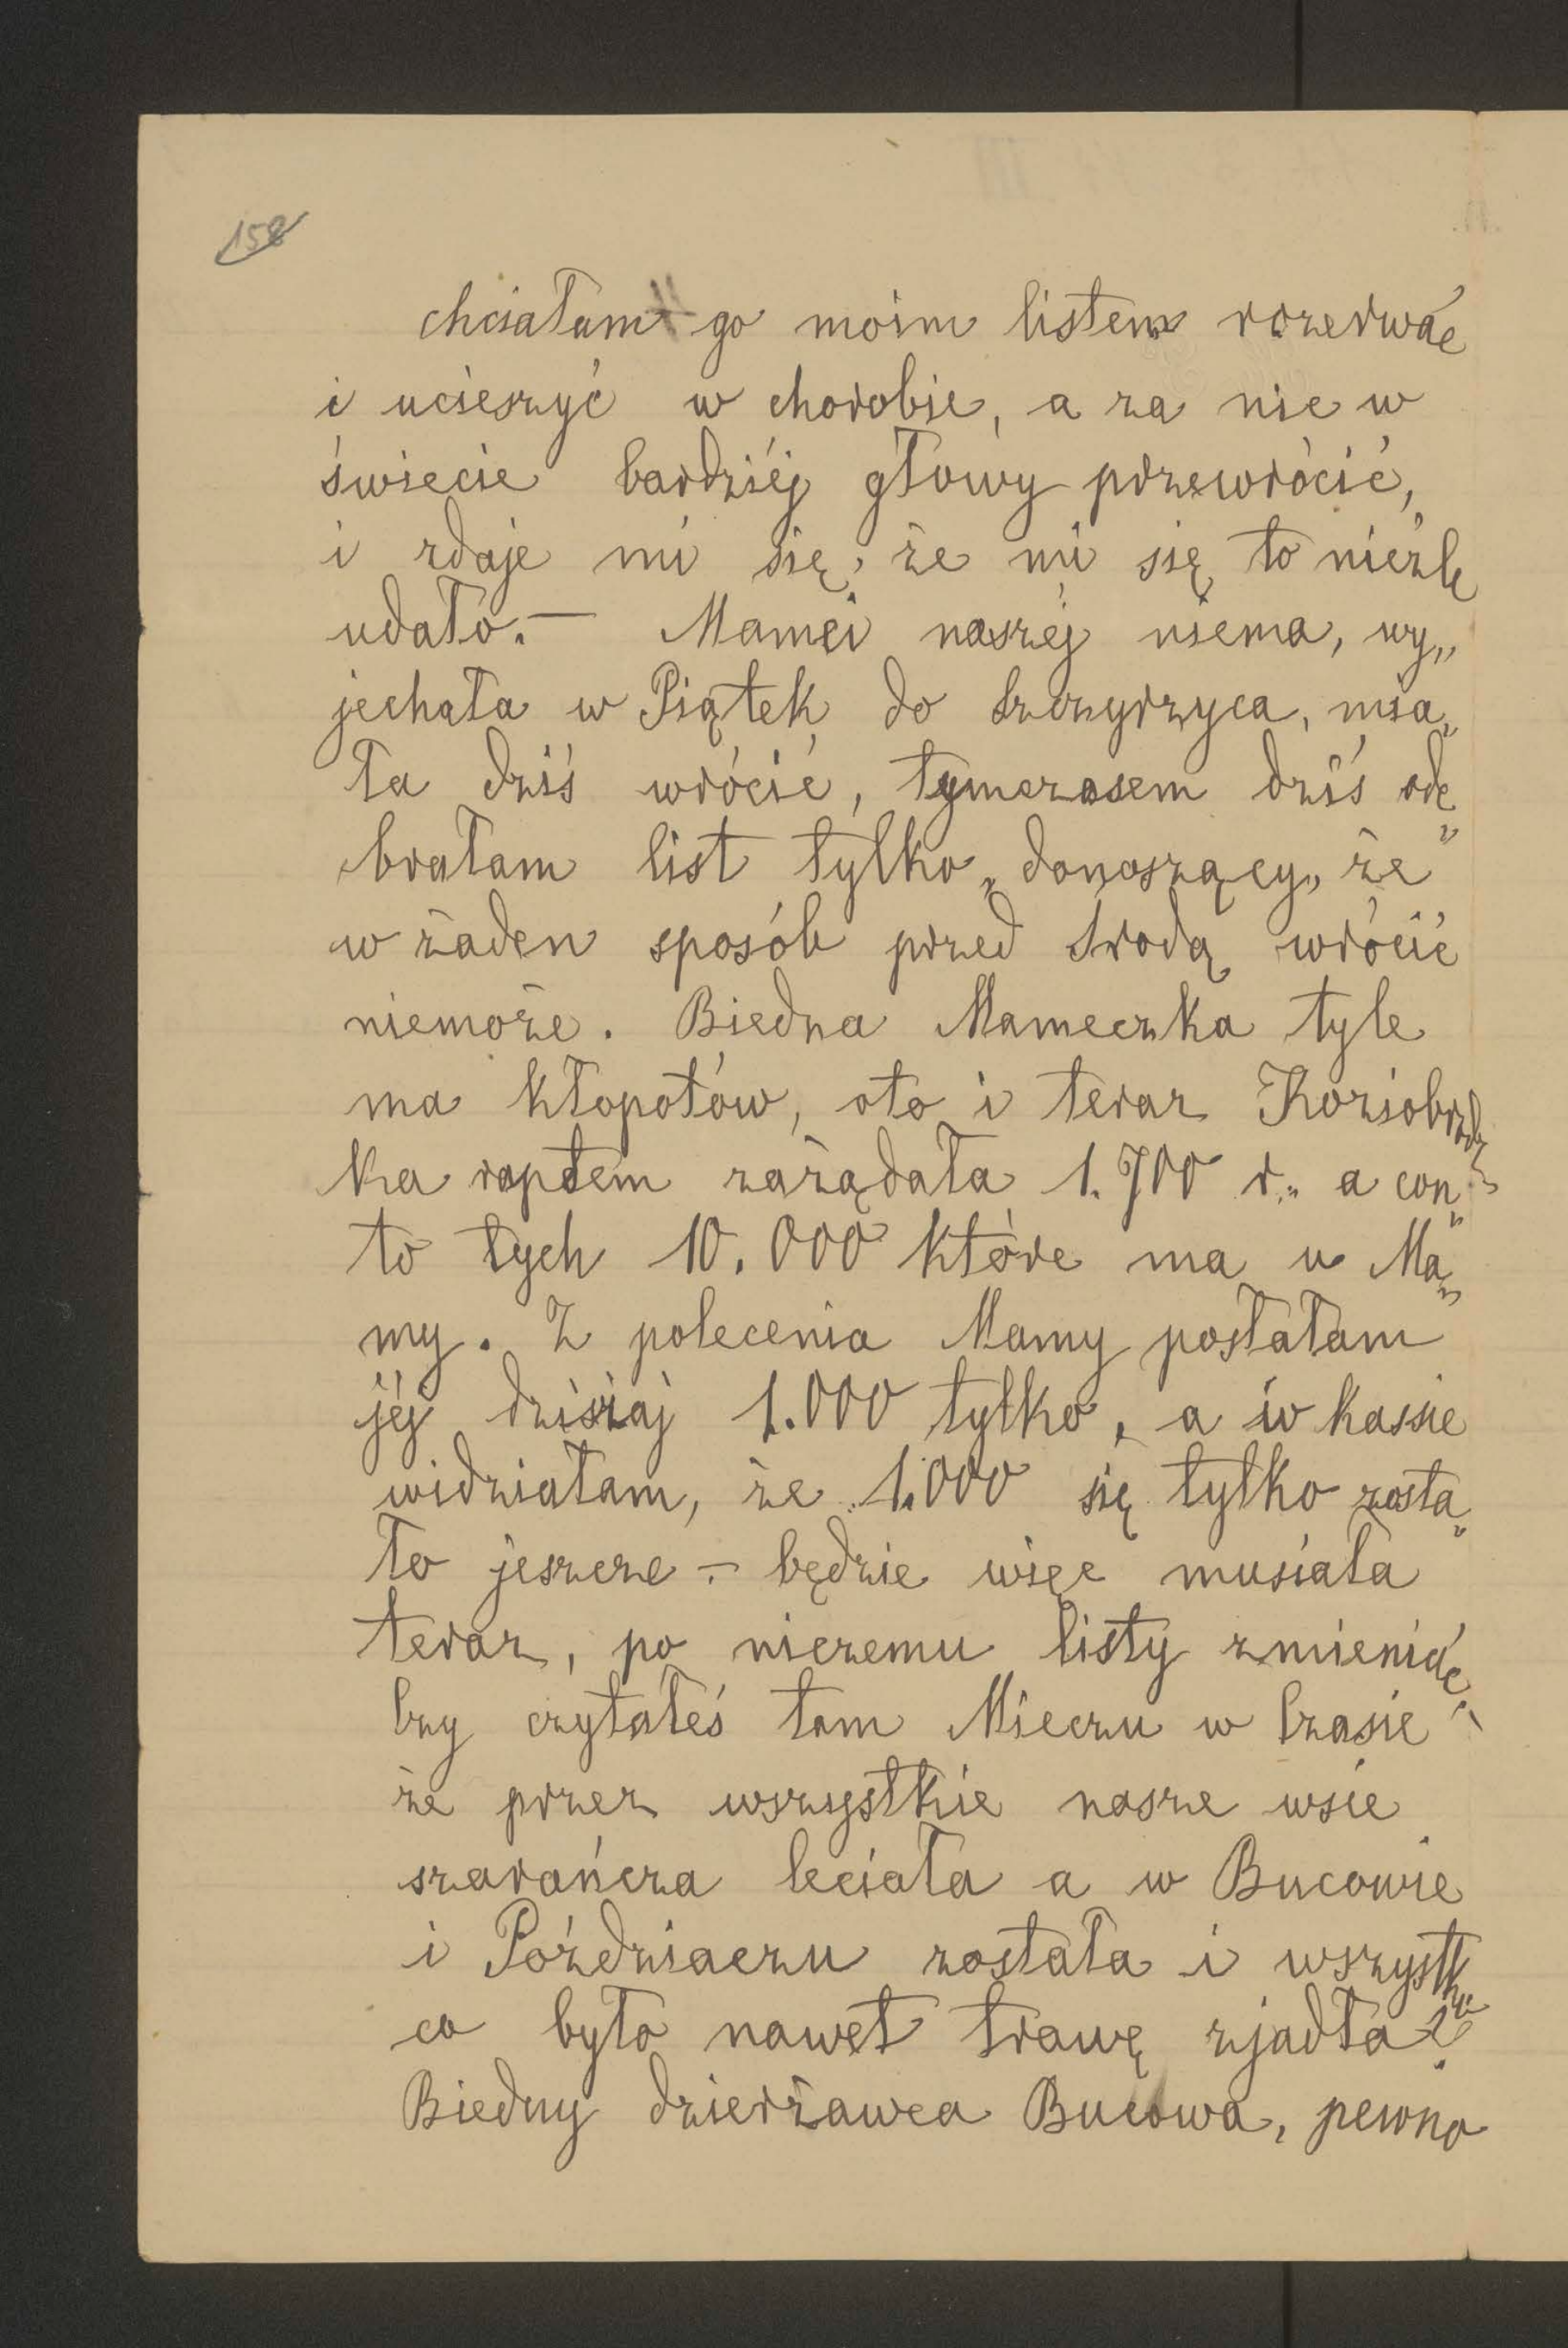 158
chciałam go moim listem rozerwać
i ucieszyć w chorobie, a za nic w
świecie bardziéj głowy przewrócić,
i zdaje mi się, że mi się to nieźle
udało. — Mamci naszéj niema, wy„
jechała w Piątek do Szczyrzyca, mia„
ła dziś wrócić, tymczasem dziś ode„
brałam list tylko „donoszący„ że
w żaden sposób przed Środą wrócić
niemoże. Biedna Mameczka tyle
ma kłopotów, oto i teraz Koziobrodz„
ka raptem zażądała 1.700 r. a con„
to tych 10.000 które ma u Ma„
my. Z polecenia Mamy posłałam
jéj dzisiaj 1.000 tylko, a w kassie
widziałam, że 1.000 się tylko zosta„
ło jeszcze – będzie więc musiała
teraz, po niczemu listy zmieniać,
Czy czytałeś tam Mieczu w Czasie
że przez wszystkie nasze wsie
szarańcza leciała a w Bucowie
i Poździaczu została i wszystko
co było nawet trawę zjadła?
Biedny dzierżawca Bucowa, pewno